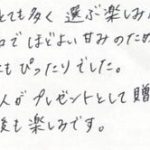 とても多く 選ぶ楽しみ
でほどよい甘みのため
もぴったりでした。
人がプレゼントとして贈
後も楽しみです。